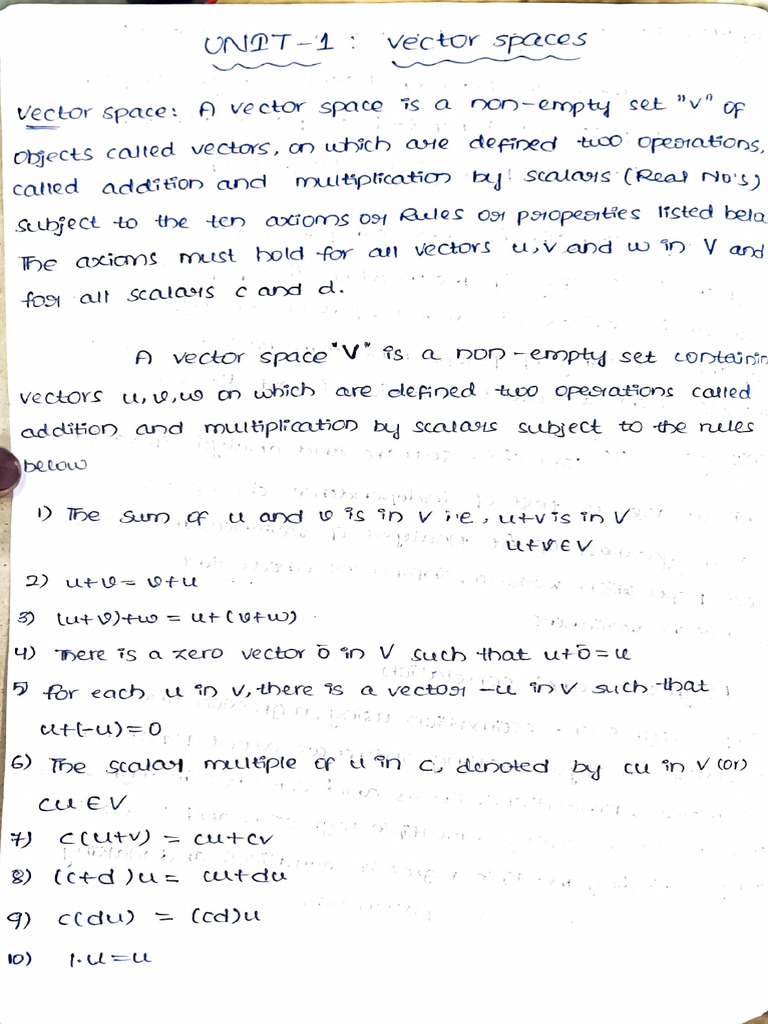 UNIT-1 : Vector spaces
Vector space: A vector space is a non-empty set "V" of
objects called vectors, on which are defined two operations,
called addition and multiplication by scalars (Real No's)
subject to the ten axioms or Rules or properties listed belo
The axioms must hold for all vectors u,v and w in V and
for all scalars c and d.
A vector space "V" is a non-empty set containin
vectors u,v,w on which are defined two operations called
addition and multiplication by scalars subject to the rules
below
1) The sum of u and v is in V i.e, u+v is in V
u+v∈V
2) u+v=v+u
3) (u+v)+w = u+(v+w)
4) There is a zero vector ō in V such that u+ō=u
5) for each u in v, there is a vector -u in V such that
u+(-u)=0
6) The scalar multiple of u in c, denoted by cu in V (or)
cu∈V
7) c(u+v) = cu+cv
8) (c+d)u = cu+du
9) c(du) = (cd)u
10) 1.u=u